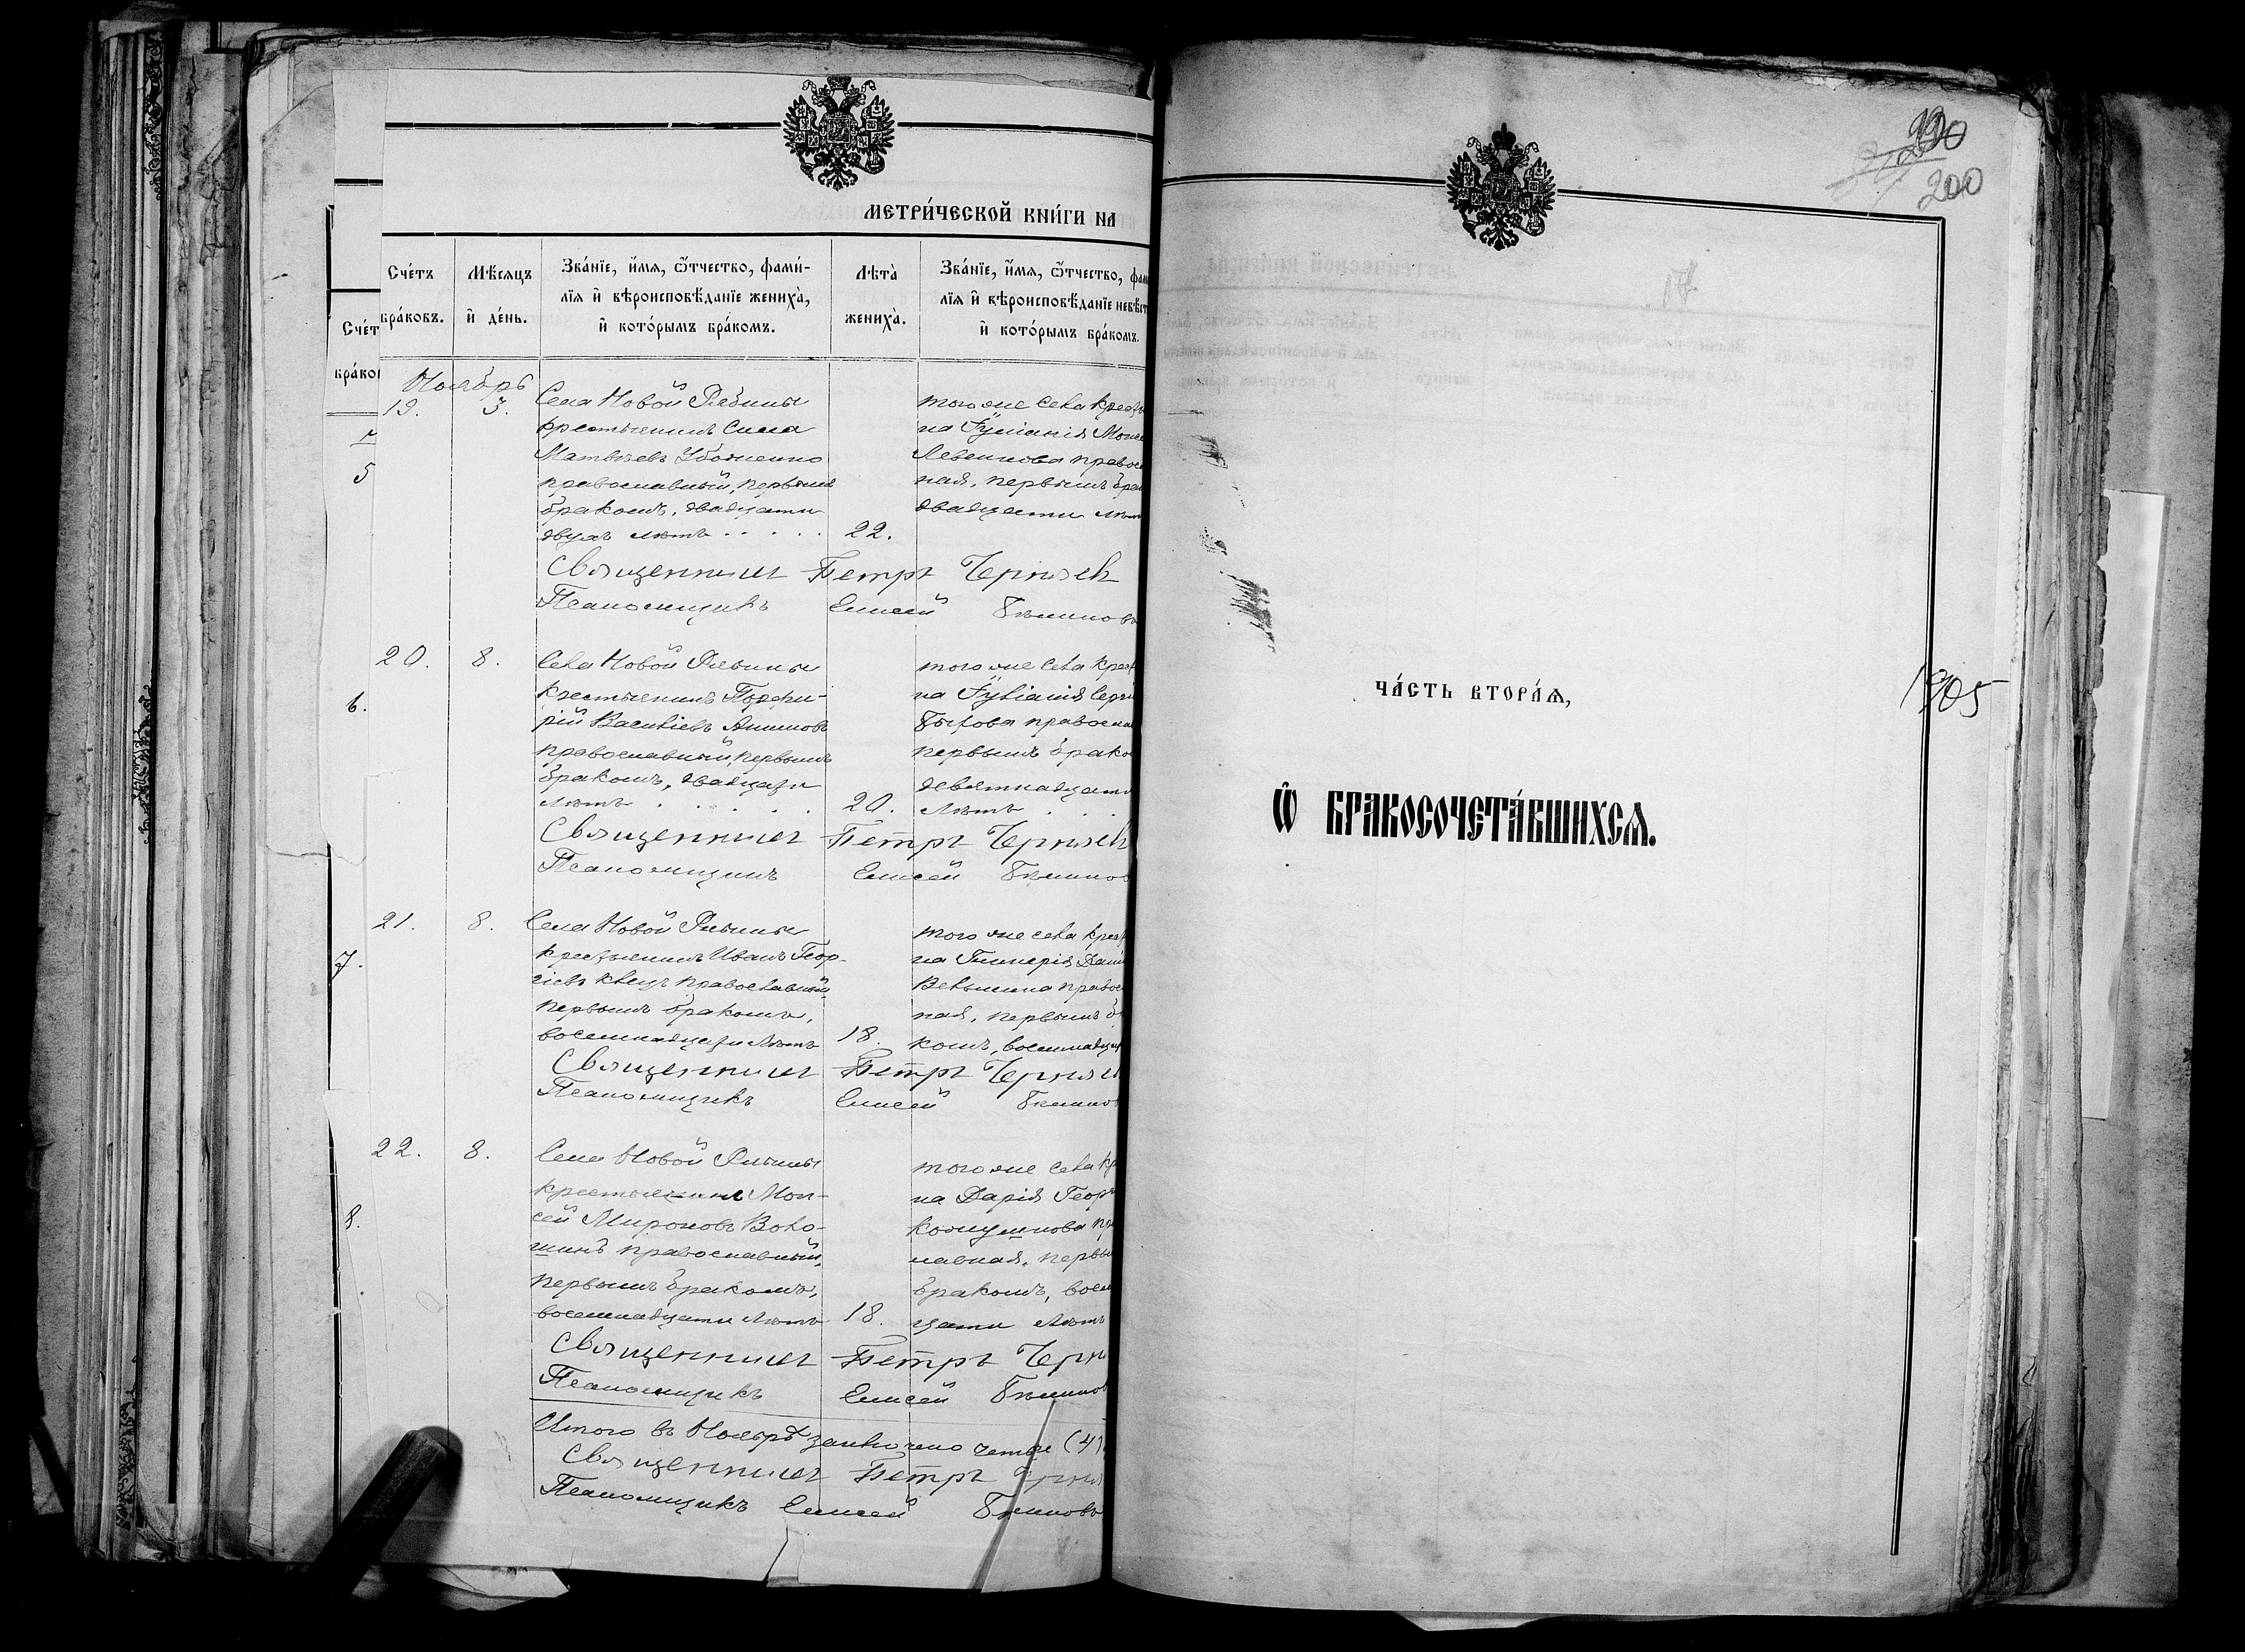 МЕТРИ́ЧЕСКОЙ КНИ́ГИ НА
Сче́тъ бра́ковъ.
Мѣ́сяцъ и де́нь.
Зва́нїе, и́мя, ѻ҆́тчество, фами́-
лїя и вѣроисповѣ́данїе жениха̀,
и кото́рымъ бра́комъ.
Лѣта̀ жениха̀.
Зва́нїе, и́мя, ѻ҆́тчество, фами
лїя и вѣроисповѣ́данїе невѣст
и кото́рымъ бра́комъ.
Сче́т
бра́ко
Ноябрь
19. 3. Села Новой Рябины
крестьянинъ Сила
Матвѣевъ
православный, первымъ
бракомъ, двадцати
двухъ лѣтъ . . . . . 22.
того же села крест
на Іуліанія Моисе
правос
ная, первымъ брак
двадцати лѣт
Священникъ Петръ Чернявъ
Псаломщикъ Елисей
5
20. 8. Села Новой Рябины
крестьянинъ Порфи-
рій Васильевъ
православный, первымъ
бракомъ, двадцати
лѣтъ . . . . . 20.
того же села крест
на Іуліанія Серг
Быкова правосла
первымъ брако
девятнадцати
лѣтъ . . .
Священникъ Петръ Чернявъ
Псаломщикъ Елисей
6.
21. 8. Села Новой Рябины
крестьянинъ Иванъ Геор-
гіевъ православный,
первымъ бракомъ,
восемнадцати лѣтъ 18.
того же села крест
на Гликерія Дані
правос
ная, первымъ б
комъ, восемнадца
Священникъ Петръ Чернявъ
Псаломщикъ Елисей
7.
22. 8. Села Новой Рябины
крестьянинъ Мои-
сей Мироновъ Воло-
шинъ православный,
первымъ бракомъ,
восемнадцати лѣтъ 18.
того же села кр
на Дарія Георг
Кожушкова пр
лавная, первы
бракомъ, восем
цати лѣтъ
Священникъ Петръ Черн
Псаломщикъ Елисей
8.
Итого въ Ноябрѣ (4)
Священникъ Петръ
Псаломщикъ Елисей
200
ЧА́СТЬ ВТОРА́Я,
Ѡ БРАКОСОЧЕТА́ВШИХСЯ.
1905